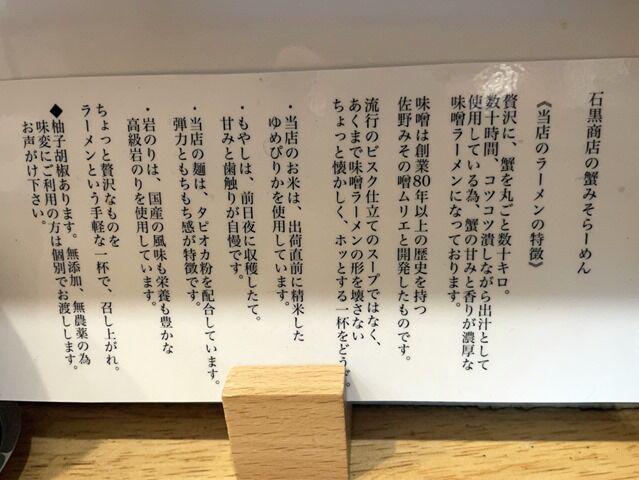 石黒商店の蟹みそらーめん
《当店のラーメンの特徴》
贅沢に、蟹を丸ごと数十キロ。
数十時間、コツコツ潰しながら出汁として
使用している為、蟹の甘みと香りが濃厚な
味噌ラーメンになっております。
味噌は創業80年以上の歴史を持つ
佐野みその噌ムリエと開発したものです。
流行のビスク仕立てのスープではなく、
あくまで味噌ラーメンの形を壊さない
ちょっと懐かしく、ホッとする一杯をどうぞ。
・当店のお米は、出荷直前に精米した
ゆめぴりかを使用しています。
・もやしは、前日夜に収穫したて。
甘みと歯触りが自慢です。
・当店の麺は、タピオカ粉を配合しています。
弾力ともちもち感が特徴です。
・岩のりは、国産の風味も栄養も豊かな
高級岩のりを使用しています。
ちょっと贅沢なものを
ラーメンという手軽な一杯で、召し上がれ。
◆柚子胡椒あります。無添加、無農薬の為
味変にご利用の方は個別でお渡しします。
お声がけ下さい。